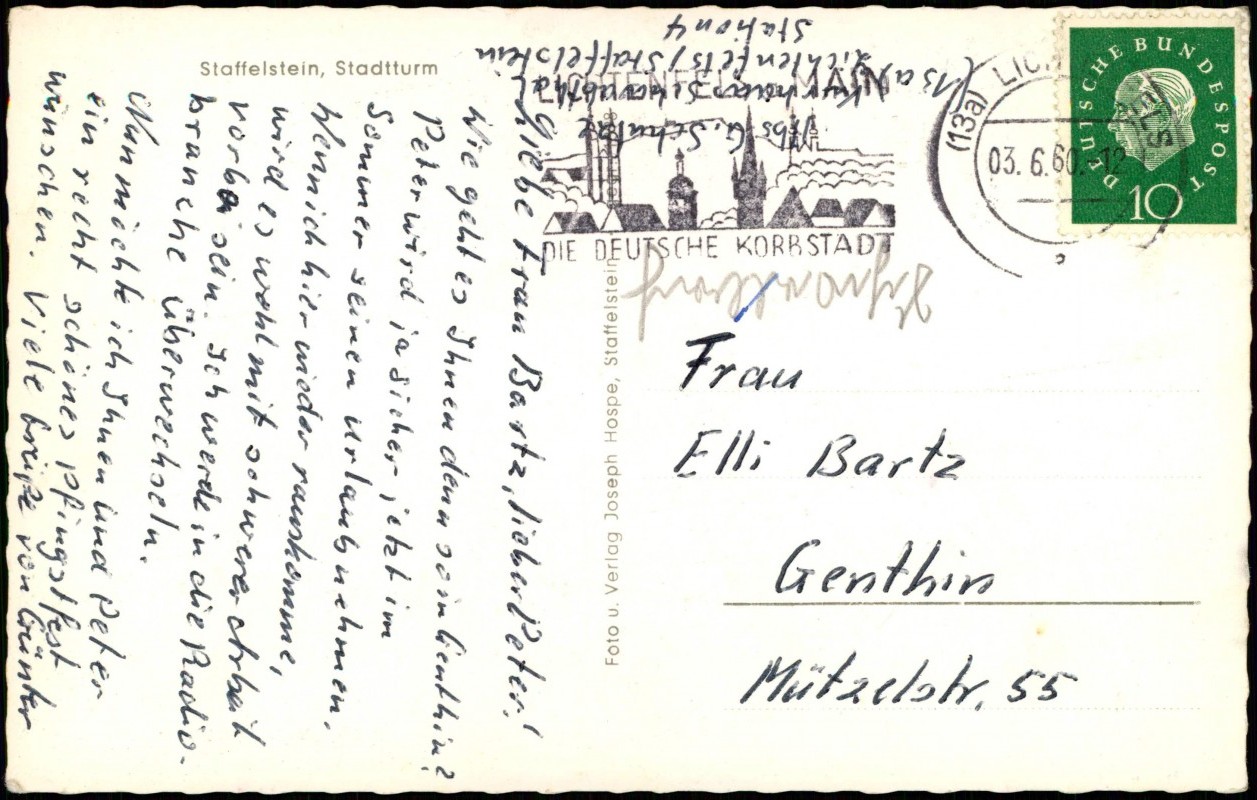 Staffelstein, Stadtturm
Abs. G. Schulze
Kurhaus Schwabthal
Lichtenfels/Staffelstein
Station 4
LICHTENFELS MAIN
DIE DEUTSCHE KORBSTADT
(13a) LICH
03.6.60.-12
DEUTSCHE BUNDESPOST
10
Liebe Frau Bartz, lieber Peter!
Wie geht es Ihnen denn so in Genthin?
Peter wird ja sicher jetzt im
Sommer seinen Urlaub nehmen.
Wenn ich hier wieder rauskomme,
wird es wohl mit schwerer Arbeit
vorbei sein. Ich werde in die Radio-
branche überwechseln.
Nun möchte ich Ihnen und Peter
ein recht schönes Pfingstfest
wünschen. Viele Grüße von Günter
Foto u. Verlag Joseph Hospe, Staffelstein
Frau
Elli Bartz
Genthin
Mützelstr. 55